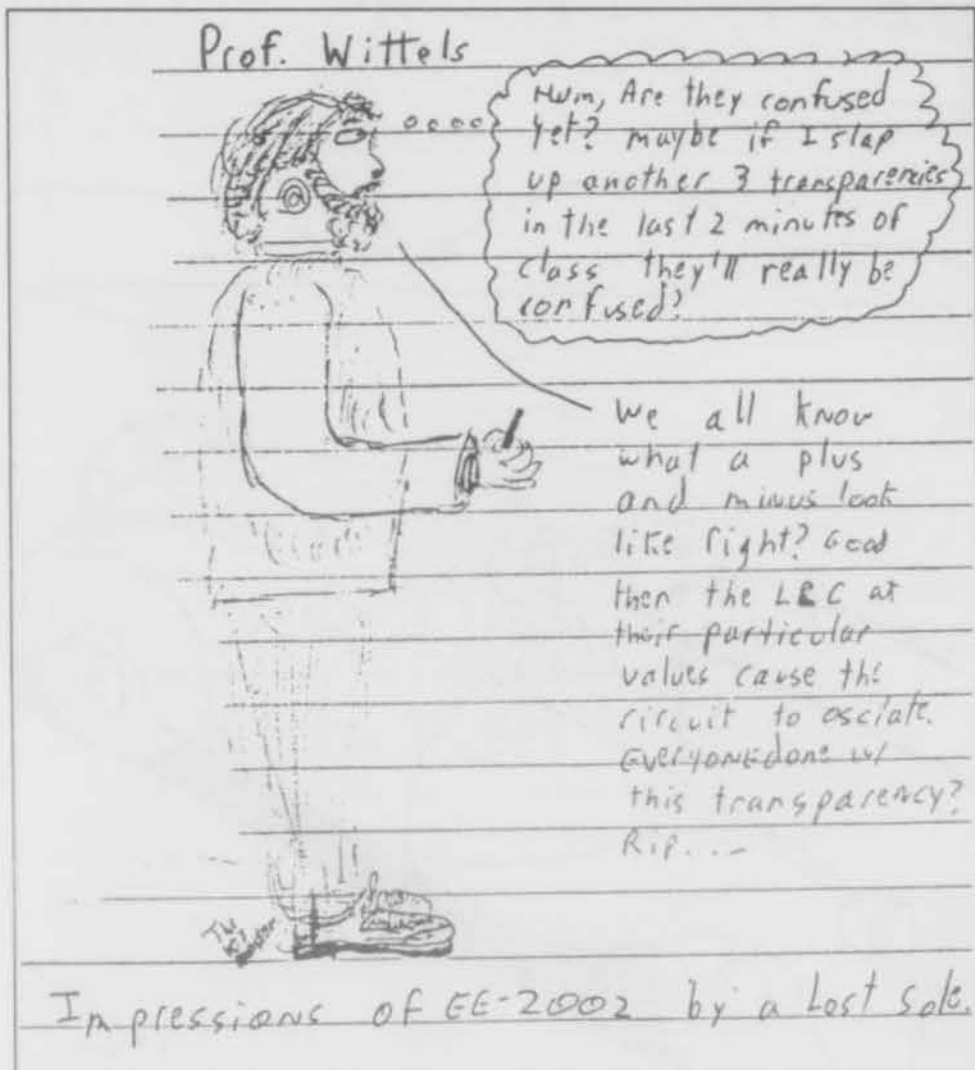 Prof. Wittels
Hmm, Are they confused
yet? maybe if I slap
up another 3 transparencies
in the last 2 minutes of
class they'll really be
confused?
We all know
what a plus
and minus look
like right? Good
then the LRC at
their particular
values cause the
circuit to osciate.
Everyone done w/
this transparency?
Rip...
The
Impressions of EE-2002 by a Lost sole.